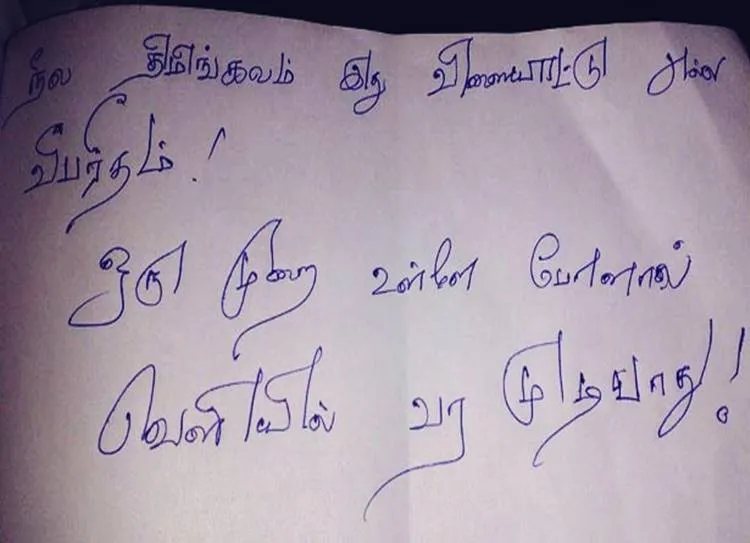 நீல திமிங்கலம் இது விளையாட்டு அல்ல
விபரீதம் !
ஒரு முறை உள்ளே போனால்
வெளியில் வர முடியாது !